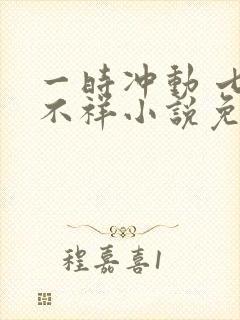 一時冲動 七
不祥小說免
程嘉喜1